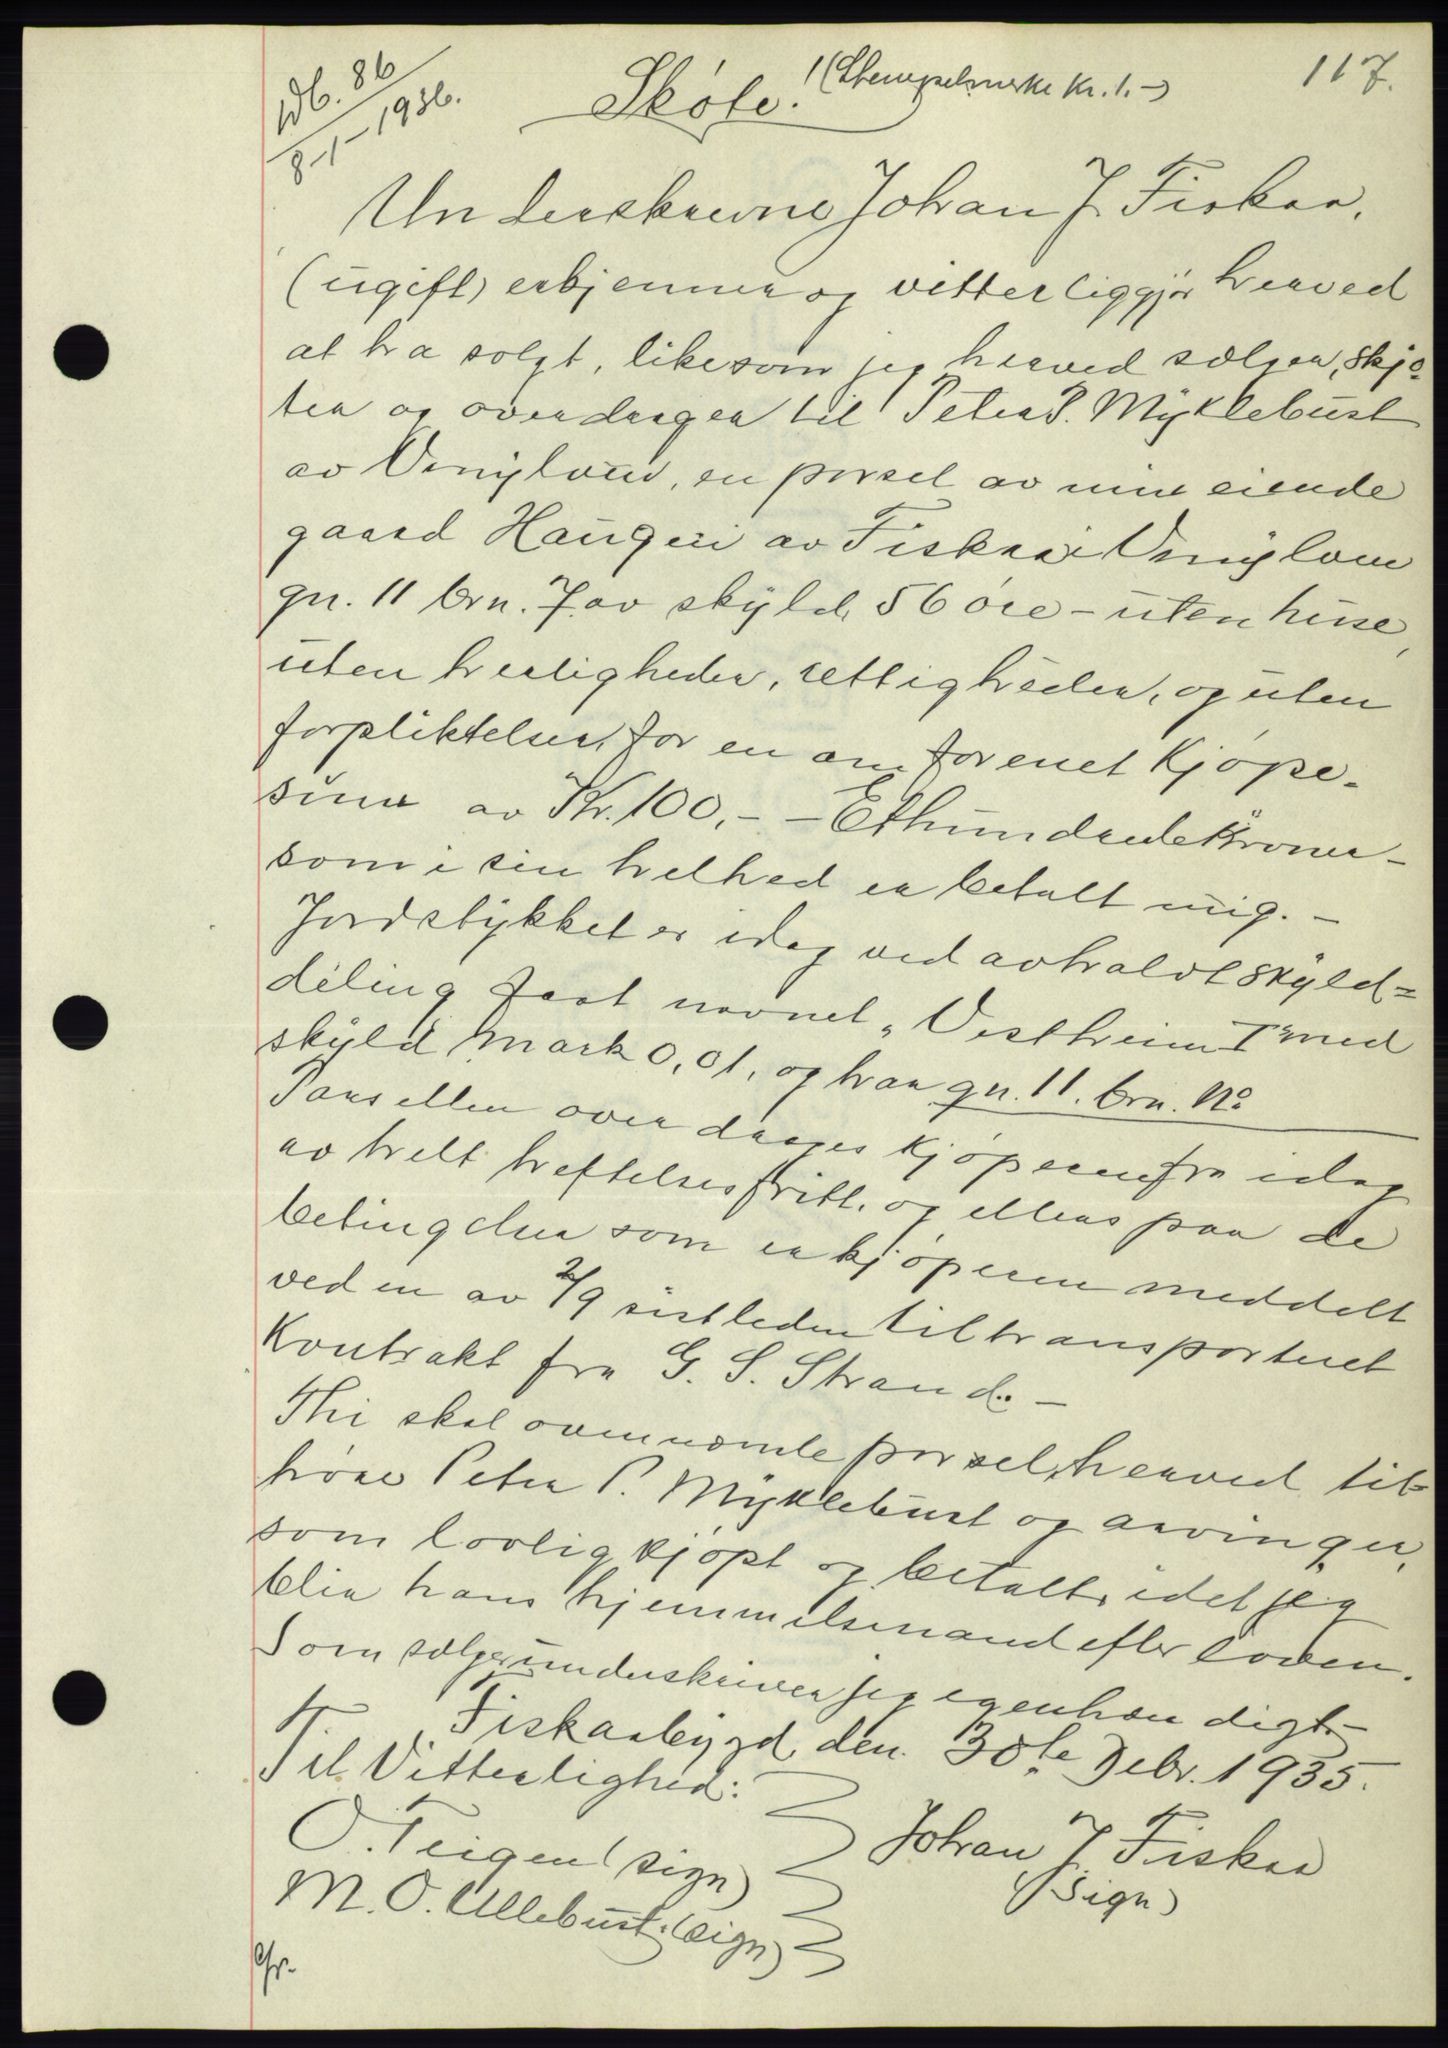 117.
Db. 86
8-1-1936.
Skøte. (Stempelmerke Kr. 1.-)
Underskrevne Johan J. Fiskaa,
(ugift) erkjenner og vitterliggjør herved
at ha solgt, likesom jeg herved sælger, skjø-
ter og overdrager til Peter P. Myklebust
av Vanylven, en parsel av min eiende
gaard Haugen av Fiskaa i Vanylven
gn. 11 brn. 7. av skyld 56 øre - uten huse,
uten herligheder, rettigheder, og uten
forpliktelser, for en omforenet Kjøpe-
sum av Kr. 100,- - Ethundrede Kroner -
som i sin helhed er betalt mig. -
Jordstykket er idag ved avholdt skyld=
deling faat navnet "Vestheim I" med
skyld Mark 0,01, og har gn. 11. brn. No
Parsellen overdrages kjøperen fra idag
av helt heftelsesfritt. og ellers paa de
betingelser som er kjøperen meddelt
ved en av 2/9 sistleden tiltransporteret
Kontrakt fra G. S. Strand. -
Thi skal ovennævnte parsel, herved til-
høre Peter P. Myklebust og arvinger,
som lovlig kjøpt og betalt, idet jeg
blir hans hjemmelsmand efter loven.
Som sælger underskriver jeg egenhændigt -
Fiskaabygd, den 30te Debr. 1935.
Til Vitterlighed:
O. Teigen (sign)
M. O. Ullebust. (sign)
Johan J. Fiskaa
(Sign)